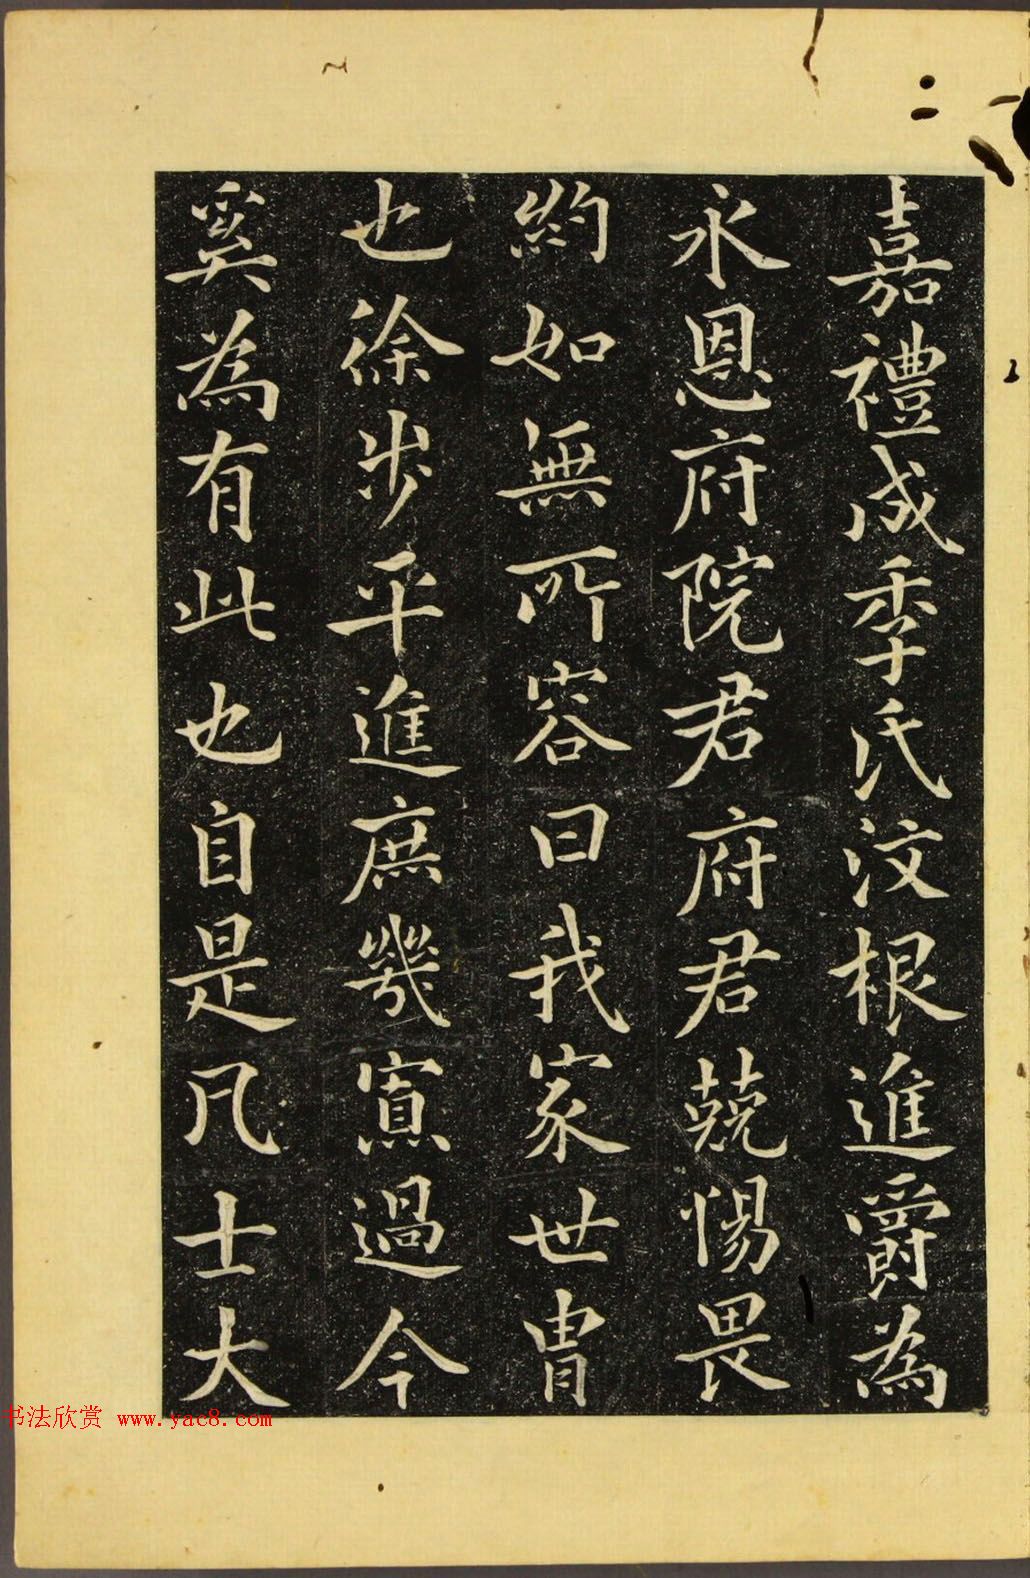 嘉禮成季氏汶根進爵為
永恩府院君府君兢惕畏
約如無所容曰我家世胄
也徐步平進庶幾寡過今
奚為有此也自是凡士大
书法欣赏 www.yac8.com